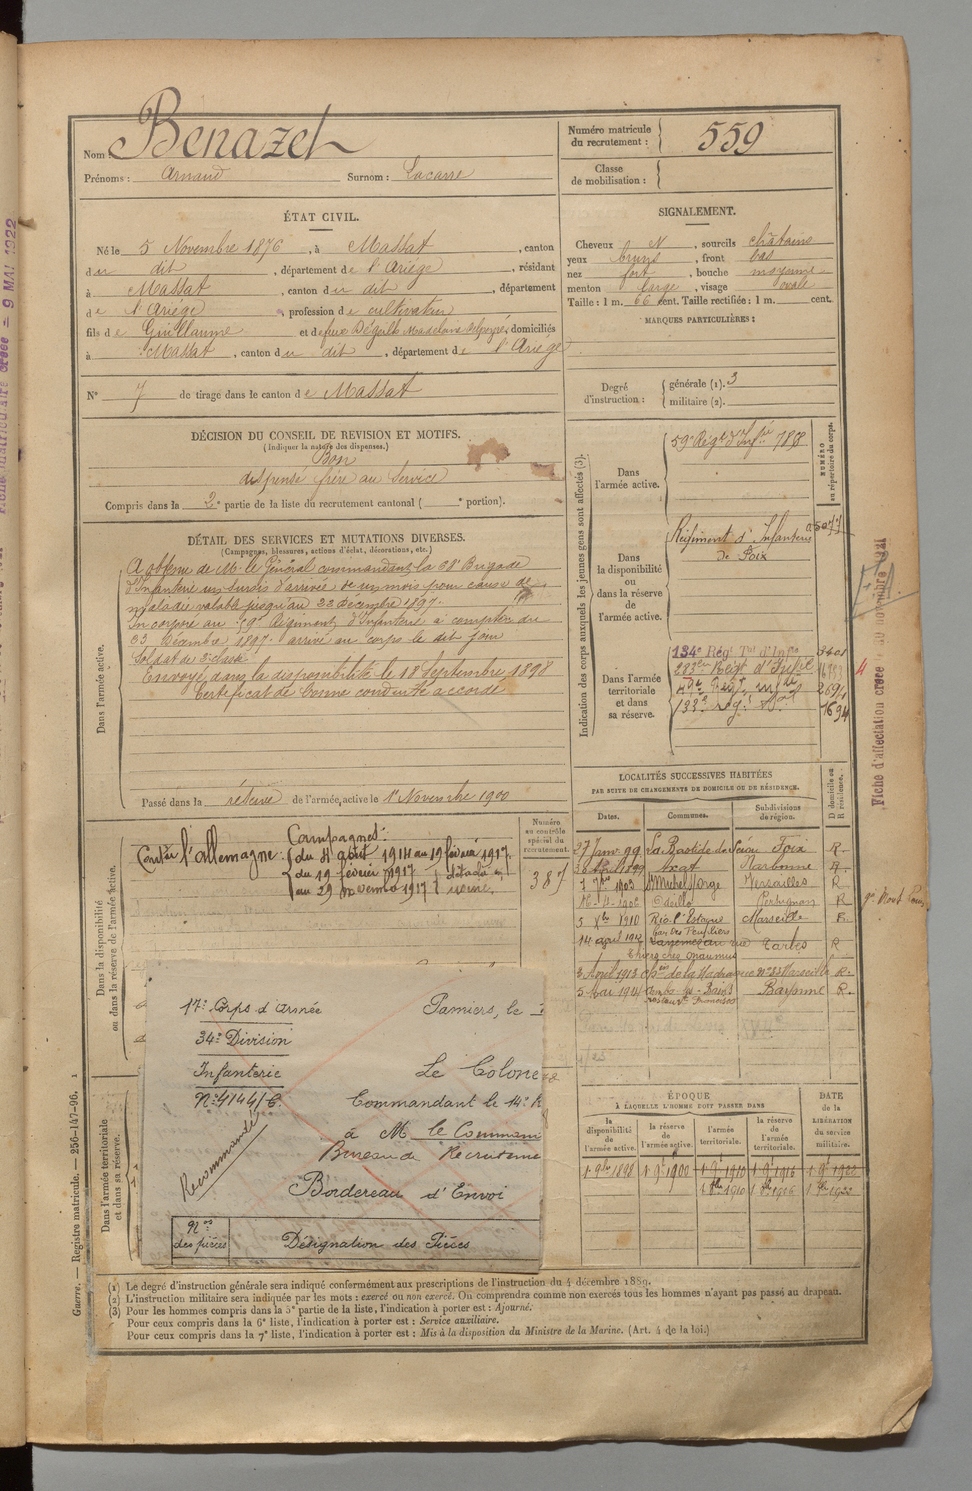 Nom : Benazet
Prénoms : Arnaud Surnom : Lacarre
Numéro matricule du recrutement : 559
Classe de mobilisation :
ÉTAT CIVIL.
Né le 5 Novembre 1876, à Massat, canton
du dit, département de l'Ariège, résidant
à Massat, canton du dit, département
de l'Ariège, profession de cultivateur
fils de Guillaume et de feue Dégeilh Madelaine, domiciliés
à Massat, canton du dit, département de l'Ariège
N° 7 de tirage dans le canton de Massat
SIGNALEMENT.
Cheveux N, sourcils châtains
yeux bruns, front bas
nez fort, bouche moyenne
menton large, visage ovale
Taille : 1 m. 66 cent. Taille rectifiée : 1 m. cent.
MARQUES PARTICULIÈRES :
Degré d'instruction : générale (1). 3
militaire (2).
DÉCISION DU CONSEIL DE REVISION ET MOTIFS.
(Indiquer la nature des dispenses.)
Bon
dispensé frère au Service
Compris dans la 2e partie de la liste du recrutement cantonal ( e portion).
DÉTAIL DES SERVICES ET MUTATIONS DIVERSES.
(Campagnes, blessures, actions d'éclat, décorations, etc.)
Dans l'armée active.
A obtenu de Mr le Général commandant la 68e Brigade
d'Infanterie un sursis d'arrivée de un mois pour cause de
maladie valable jusqu'au 22 décembre 1897.
Incorporé au 59e Régiment d'Infanterie à compter du
23 Décembre 1897. arrivé au corps le dit jour
Soldat de 2e classe.
Envoyé dans la disponibilité le 18 Septembre 1898
Certificat de bonne conduite accordé
Passé dans la réserve de l'armée active le 1er Novembre 1900
Indication des corps auxquels les jeunes gens sont affectés (3).
NUMÉRO au répertoire du corps.
Dans l'armée active.
59e Régt d'Infie
Dans la disponibilité ou dans la réserve de l'armée active.
Régiment d'Infanterie
de Foix
Dans l'armée territoriale et dans sa réserve.
134e Régt Tal d'Infie 3401
LOCALITÉS SUCCESSIVES HABITÉES
PAR SUITE DE CHANGEMENTS DE DOMICILE OU DE RÉSIDENCE.
Dates. Communes. Subdivisions de région. D domicile ou R résidence.
27 Janv 99 La Bastide de Sérou Foix R.
Axat Narbonne R.
1903 St Michel s/ Orge Versailles R
Perpignan R
5 1910 Marseille R.
14 août 1912 Tarbes R
3 Avril 1913 Marseille R.
5 Mai 1914 Cambo-les-Bains Bayonne R.
Dans la disponibilité ou dans la réserve de l'armée active.
Numéro au contrôle spécial du recrutement.
387
Campagnes :
Contre l'Allemagne : du 4 août 1914 au 19 février 1917.
du 19 février 1917
au 29 1917 détaché en usine.
17e Corps d'Armée Pamiers, le
34e Division
Infanterie Le Colone
N° 4144/C Commandant le 14e R
Recommandé
à M le Comman
Bureau de Recruteme
Bordereau d'Envoi
Nos des pièces Désignation des Pièces
Dans l'armée territoriale et dans sa réserve.
ÉPOQUE
À LAQUELLE L'HOMME DOIT PASSER DANS
la disponibilité de l'armée active. la réserve de l'armée active. l'armée territoriale. la réserve de l'armée territoriale.
DATE de la LIBÉRATION du service militaire.
1 9bre 1898 1 9bre 1900 1 9bre 1910 1 9bre 1916 1 9bre 1922
(1) Le degré d'instruction générale sera indiqué conformément aux prescriptions de l'instruction du 4 décembre 1889.
(2) L'instruction militaire sera indiquée par les mots : exercé ou non exercé. On comprendra comme non exercés tous les hommes n'ayant pas passé au drapeau.
(3) Pour les hommes compris dans la 5e partie de la liste, l'indication à porter est : Ajourné.
Pour ceux compris dans la 6e liste, l'indication à porter est : Service auxiliaire.
Pour ceux compris dans la 7e liste, l'indication à porter est : Mis à la disposition du Ministre de la Marine. (Art. 4 de la loi.)
Guerre. — Registre matricule. — 256-147-96.
Fiche d'affectation créée novembre 1921
créée = 9 MAI 1922